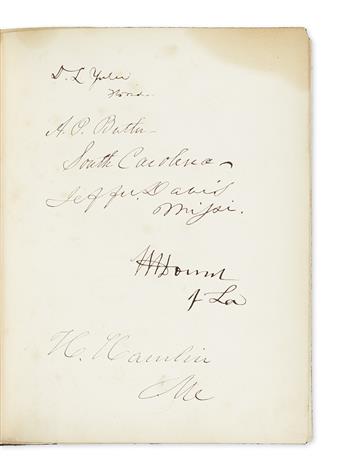 D. L. Yulee
Florida
A. P. Butler
South Carolina
Jeffn. Davis
Missi.
of La
H. Hamlin
Me